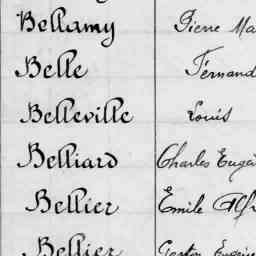 Bellamy Pierre Ma
Belle Fernand
Belleville Louis
Belliard Charles Eugè
Bellier Emile Alfr
Bellier Gaston Eugène